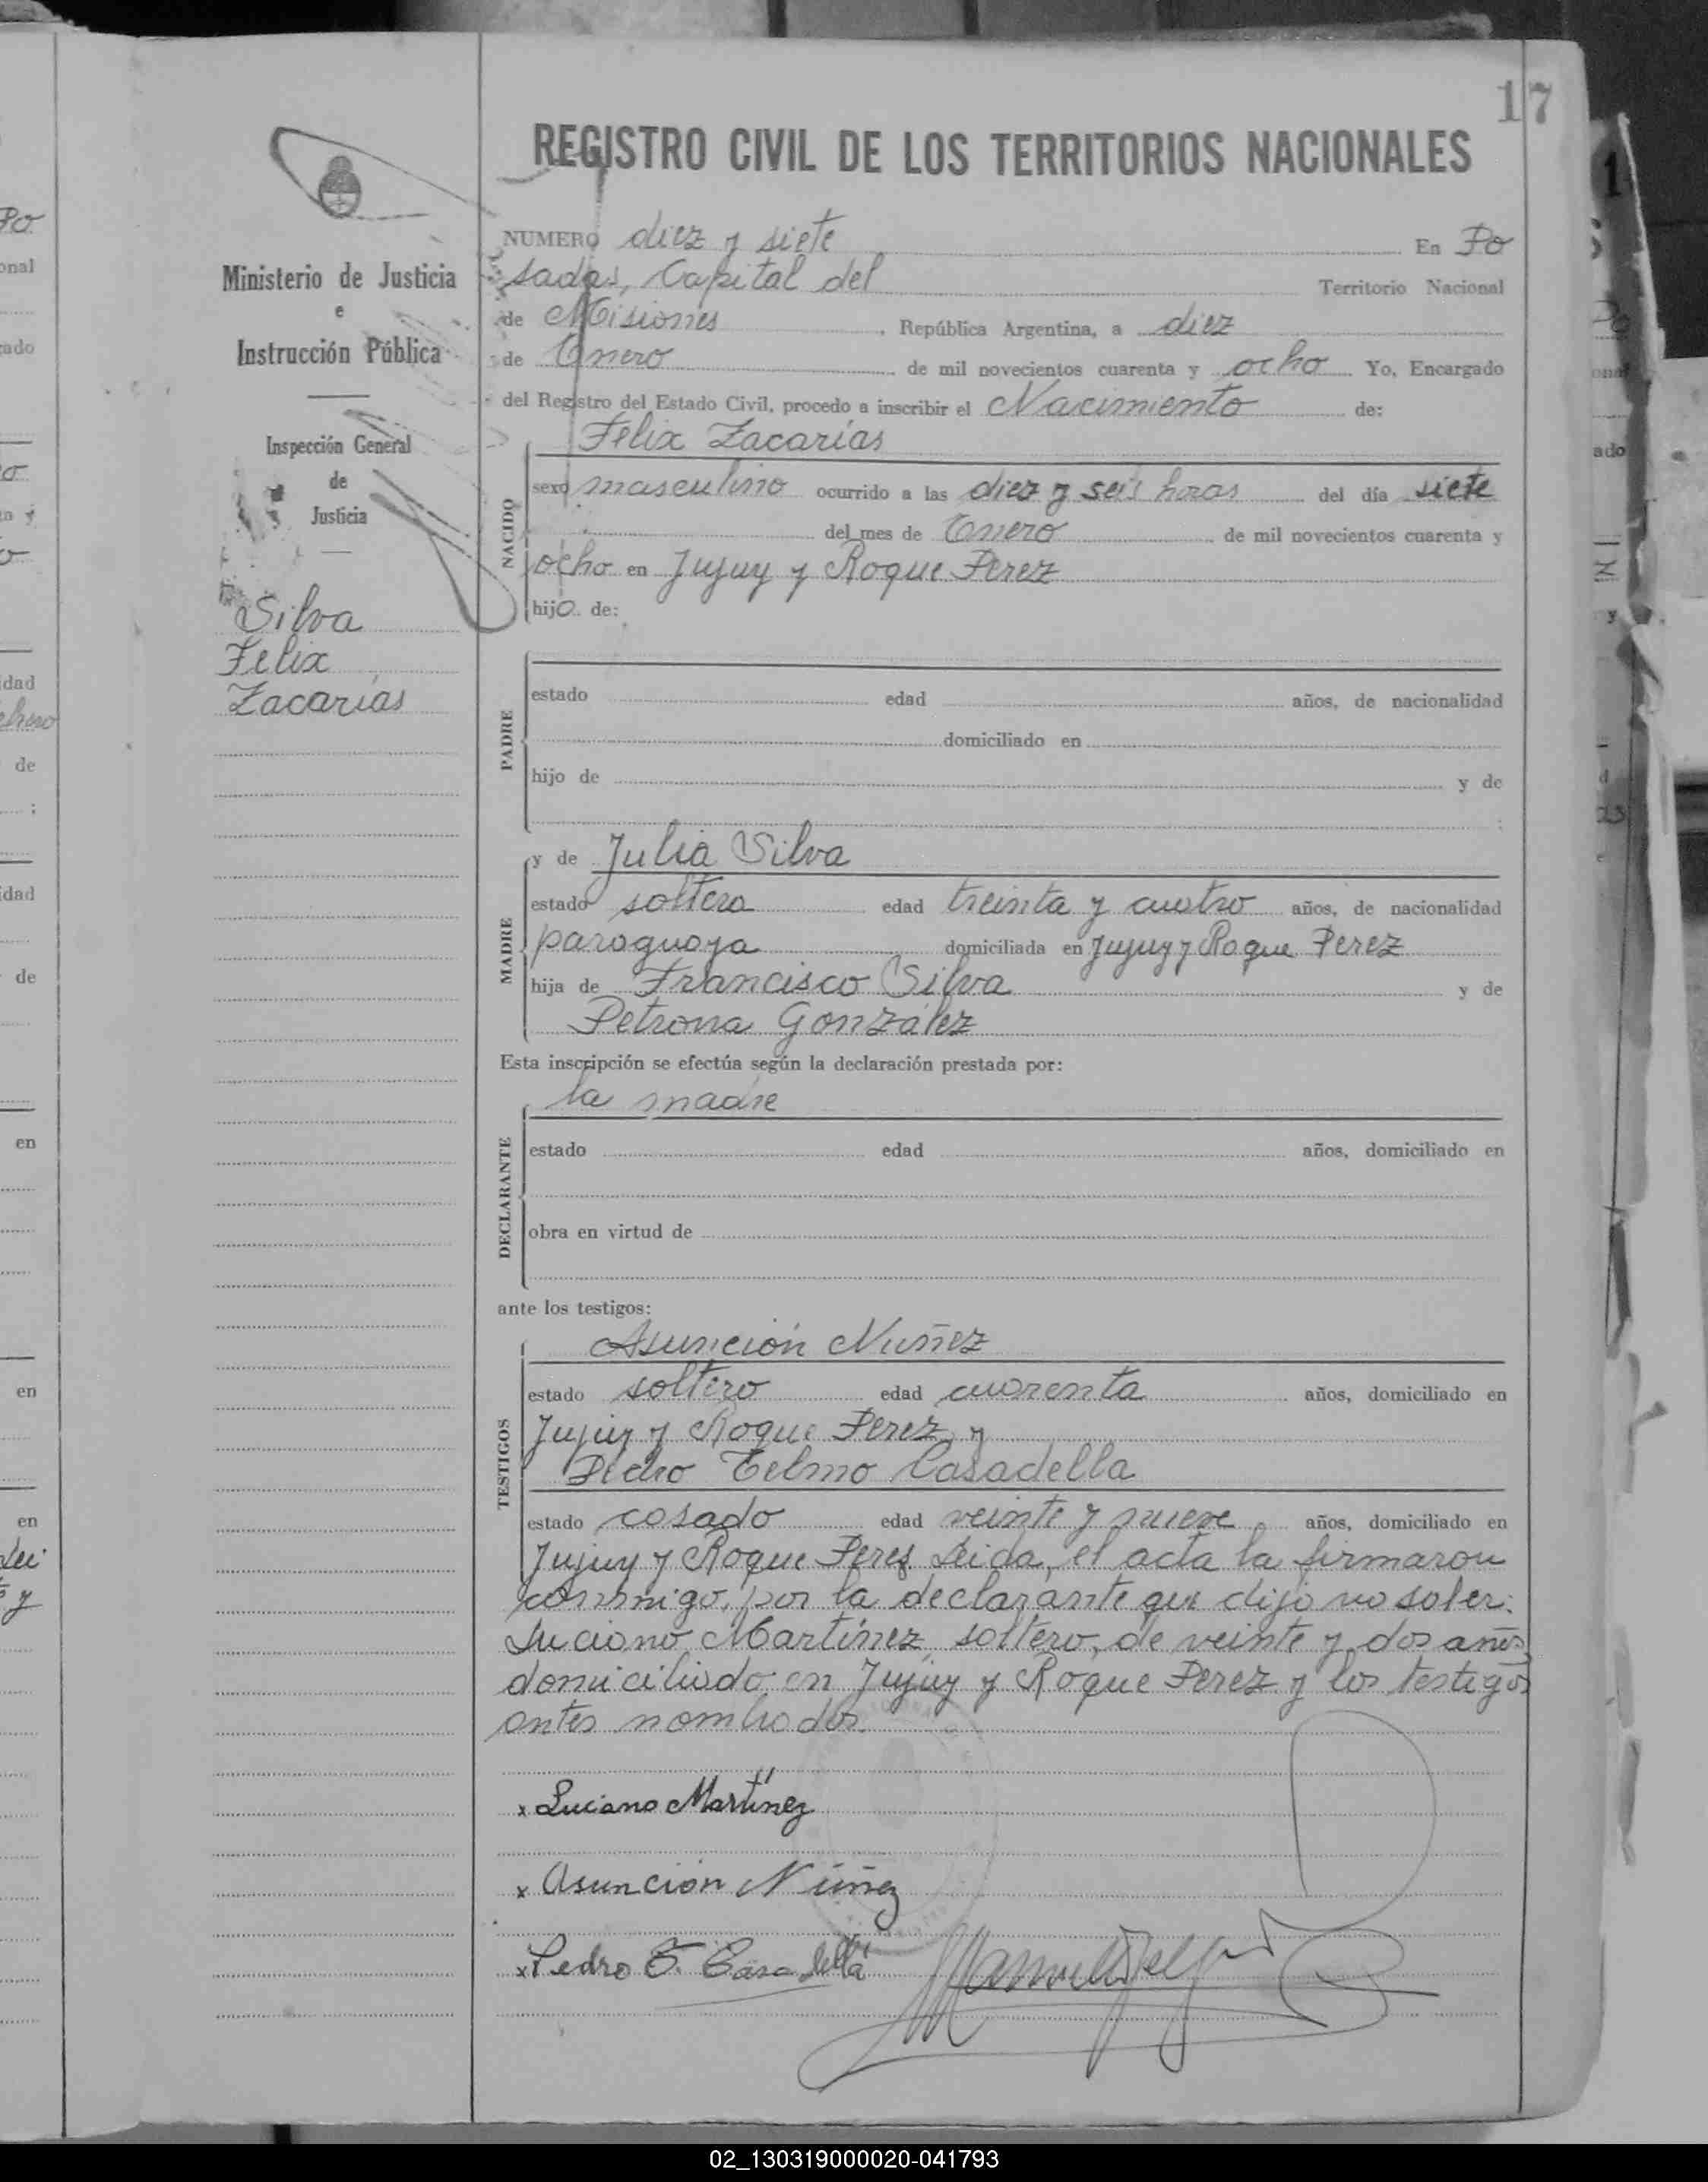 17
REGISTRO CIVIL DE LOS TERRITORIOS NACIONALES
Ministerio de Justicia
e
Instrucción Pública
Inspección General
de
Justicia
Silva
Felix
Zacarías
NUMERO diez y siete En Po
sadas, Capital del Territorio Nacional
de Misiones, República Argentina, a diez
de Enero de mil novecientos cuarenta y ocho Yo, Encargado
del Registro del Estado Civil, procedo a inscribir el Nacimiento de:
Félix Zacarías
NACIDO
sexo masculino ocurrido a las diez y seis horas del día siete
del mes de Enero de mil novecientos cuarenta y
ocho en Jujuy y Roque Perez
hijo de:
PADRE
estado edad años, de nacionalidad
domiciliado en
hijo de y de
;
MADRE
y de Julia Silva
estado soltera edad treinta y cuatro años, de nacionalidad
paraguaya domiciliada en Jujuy y Roque Perez
hija de Francisco Silva y de
Petrona González
Esta inscripción se efectúa según la declaración prestada por:
la madre
DECLARANTE
estado edad años, domiciliado en
obra en virtud de
ante los testigos:
TESTIGOS
Asunción Nuñez
estado soltero edad cuarenta años, domiciliado en
Jujuy y Roque Perez y
Pedro Telmo Casadella
estado casado edad veinte y nueve años, domiciliado en
Jujuy y Roque Perez. Leida, el acta la firmaron
conmigo, por la declarante que dijo no saber:
Luciano Martínez, soltero, de veinte y dos años
domiciliado en Jujuy y Roque Perez y los testigos
antes nombrados.
x Luciano Martínez
x Asunción Núñez
x Pedro T. Casadella
02_130319000020-041793